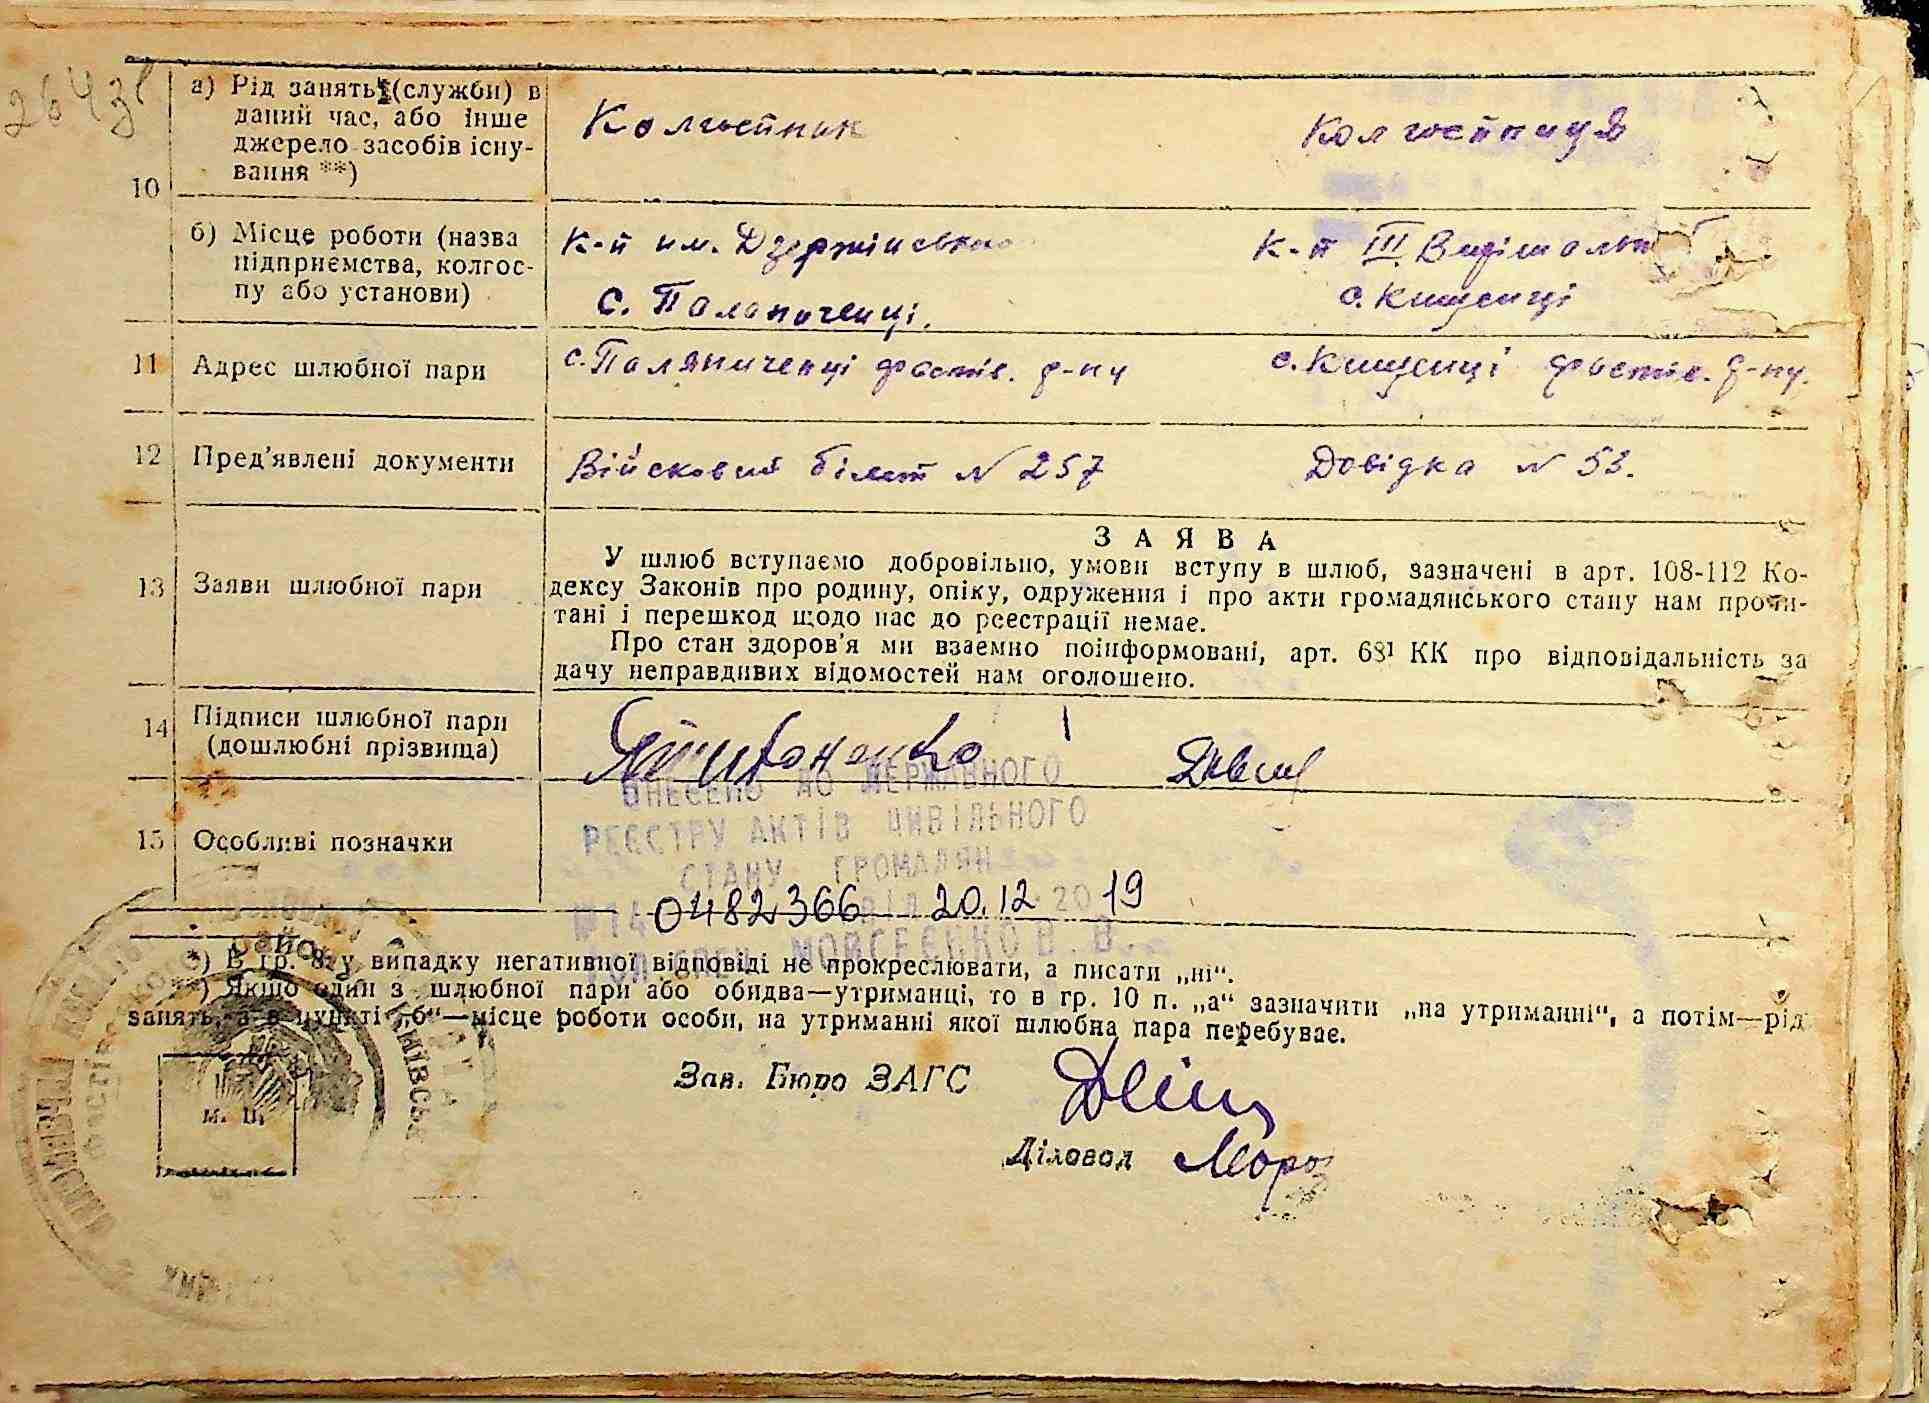 264 зв
10
а) Рід занять (служби) в
даний час, або інше
джерело засобів існу-
вання **)
Колгоспник
Колгоспниця
б) Місце роботи (назва
підприємства, колгос-
пу або установи)
К-п им. Дзержинського
с. Палоничепці.
К-п III Вирішальн
с. Кищенці
11
Адрес шлюбної пари
с. Паляниченці фастів. р-ну
с. Кищенці фастів. р-ну.
12
Пред'явлені документи
Військовий білет N 257
Довідка N 53.
13
Заяви шлюбної пари
ЗАЯВА
У шлюб вступаємо добровільно, умови вступу в шлюб, зазначені в арт. 108-112 Ко-
дексу Законів про родину, опіку, одруження і про акти громадянського стану нам прочи-
тані і перешкод щодо нас до реєстрації немає.
Про стан здоров'я ми взаємно поінформовані, арт. 68¹ КК про відповідальність за
дачу неправдивих відомостей нам оголошено.
14
Підписи шлюбної пари
(дошлюбні прізвища)
15
Особливі позначки
ВНЕСЕНО ДО ДЕРЖАВНОГО
РЕЄСТРУ АКТІВ ЦИВІЛЬНОГО
СТАНУ ГРОМАДЯН
№14 0482366 від 20.12 2019
МОВСЕЄНКО В. В.
*) В гр. 8 у випадку негативної відповіді не прокреслювати, а писати „ні“.
**) Якщо один з шлюбної пари або обидва—утриманці, то в гр. 10 п. „а“ зазначити „на утриманні“, а потім—рід
занять, а в пункті „б“—місце роботи особи, на утриманні якої шлюбна пара перебуває.
Зав. Бюро ЗАГС
М. П.
Діловод Мороз